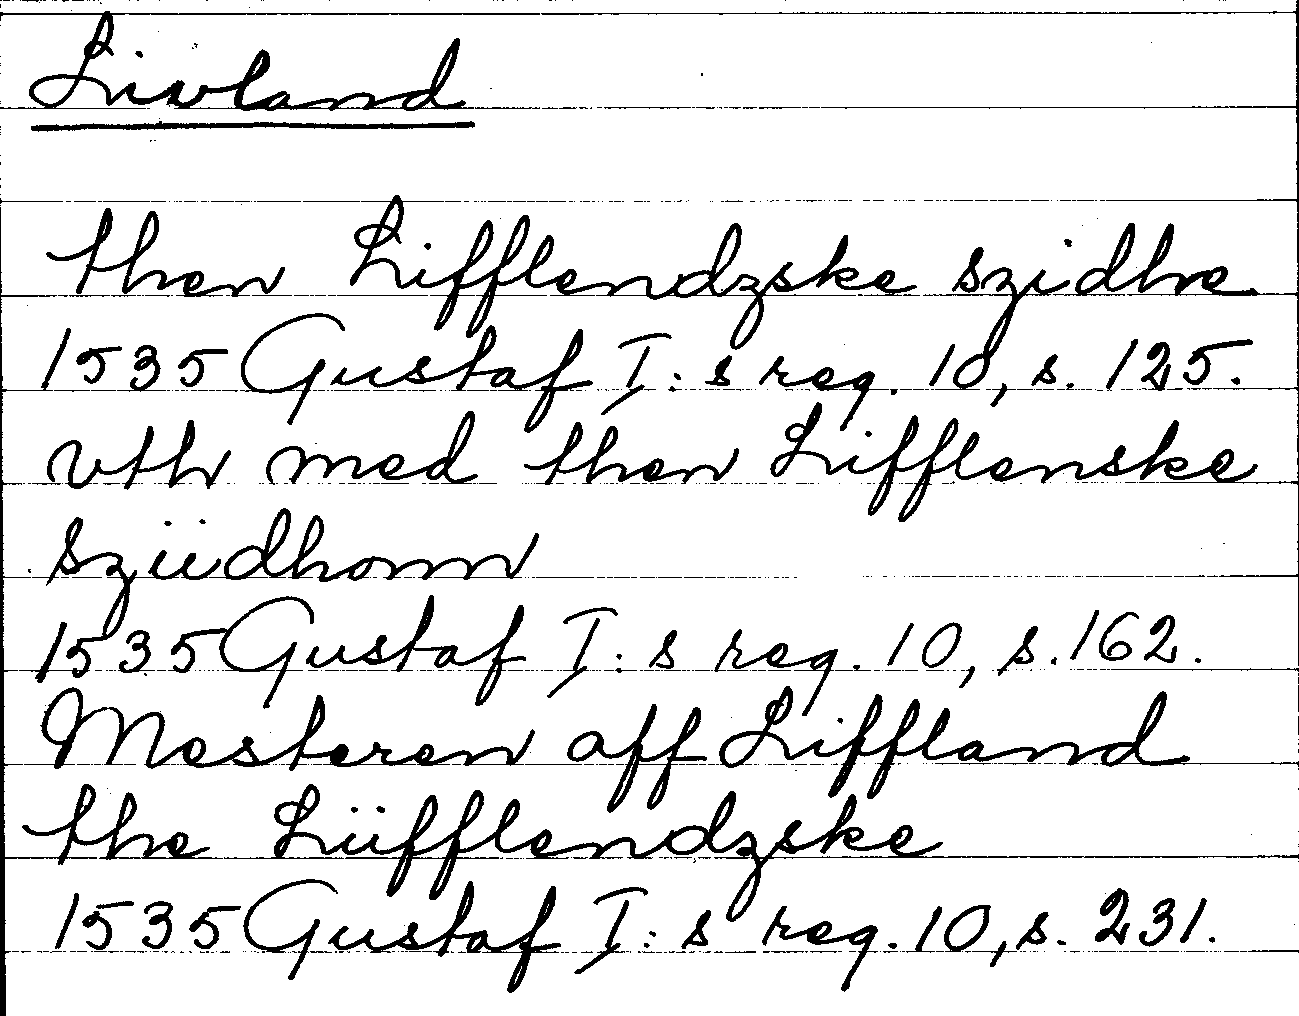 Livland
then Lifflendzske szidhe
1535 Gustaf I:s reg. 10, s. 125.
vth med then Lifflenske
sziidhonn
1535 Gustaf I:s reg. 10, s. 162.
Mesteren aff Liffland
the Liifflendzske
1535 Gustaf I:s reg. 10, s. 231.